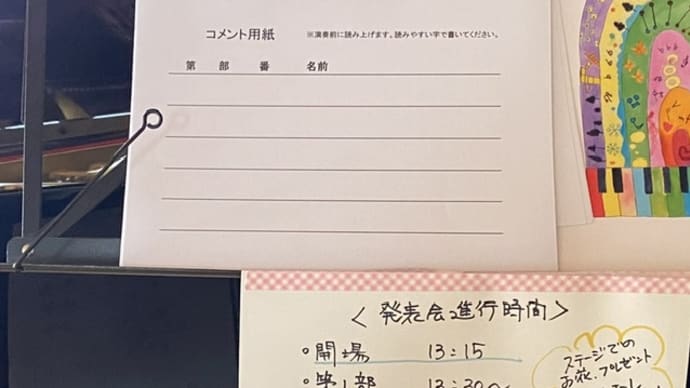 コメント用紙 ※演奏前に読み上げます。読みやすい字で書いてください。
第 部 番 名前
<発表会進行時間>
。開場 13:15
。第1部 13:30
ステージでの
お花、プレゼント